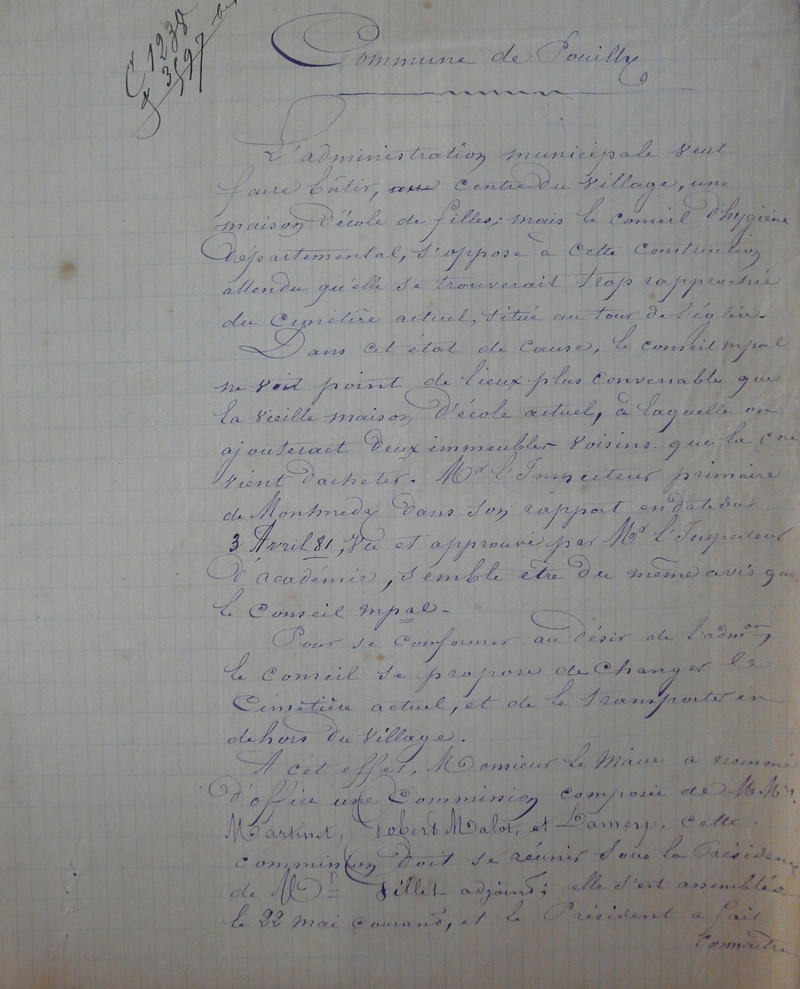 C 1238
3597
Commune de Pouilly
L'administration municipale veut
faire bâtir, centre du village, une
maison d'école de filles; mais le conseil d'hygiène
Départemental, s'oppose à cette construction
attendu qu'elle se trouverait trop rapprochée
du cimétière actuel, situé au tour de l'église.
Dans cet état de cause, le conseil mpal
ne voit point de lieux plus convenable que
la vieille maison d'école actuel, à laquelle on
ajouterait deux immeubles voisins que la cne
vient d'acheter. Mr l'Inspecteur primaire
de Montmedy dans son rapport en date du
3 Avril 81, Vu et approuvé par Mr l'Inspecteur
d'académie, semble être du même avis que
le Conseil mpal.
Pour se conformer au désir de l'admon,
le conseil se propose de changer le
Cimetière actuel, et de le transporter en
dehors du village.
A cet effet, Monsieur le Maire a nommé
d'office une Commission composée de MMrs
Martinet, Robert Malot, et Damery, cette
commission doit se réunir sous la Présidence
de Mr Villet adjoint; elle s'est assemblée
le 22 mai courant, et le Président a fait
connaître